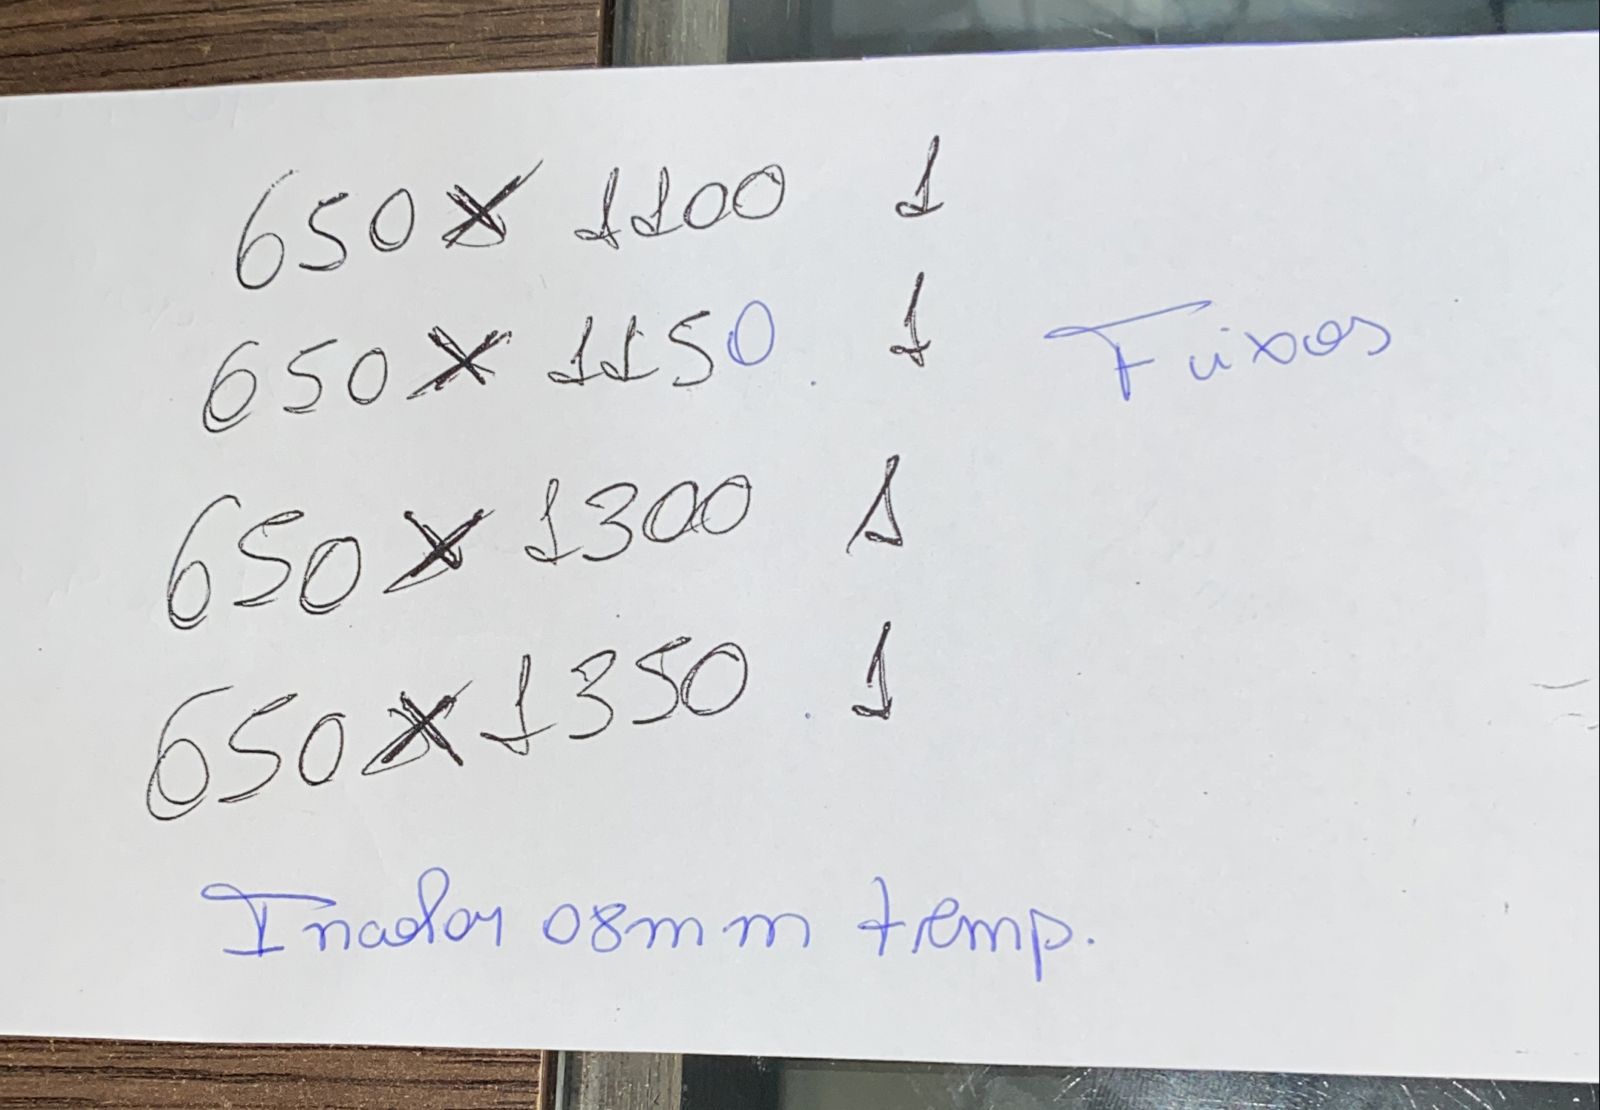 650 x 1100 1
650 x 1150 1 Fixos
650 x 1300 1
650 x 1350 1
Incolor 08mm temp.